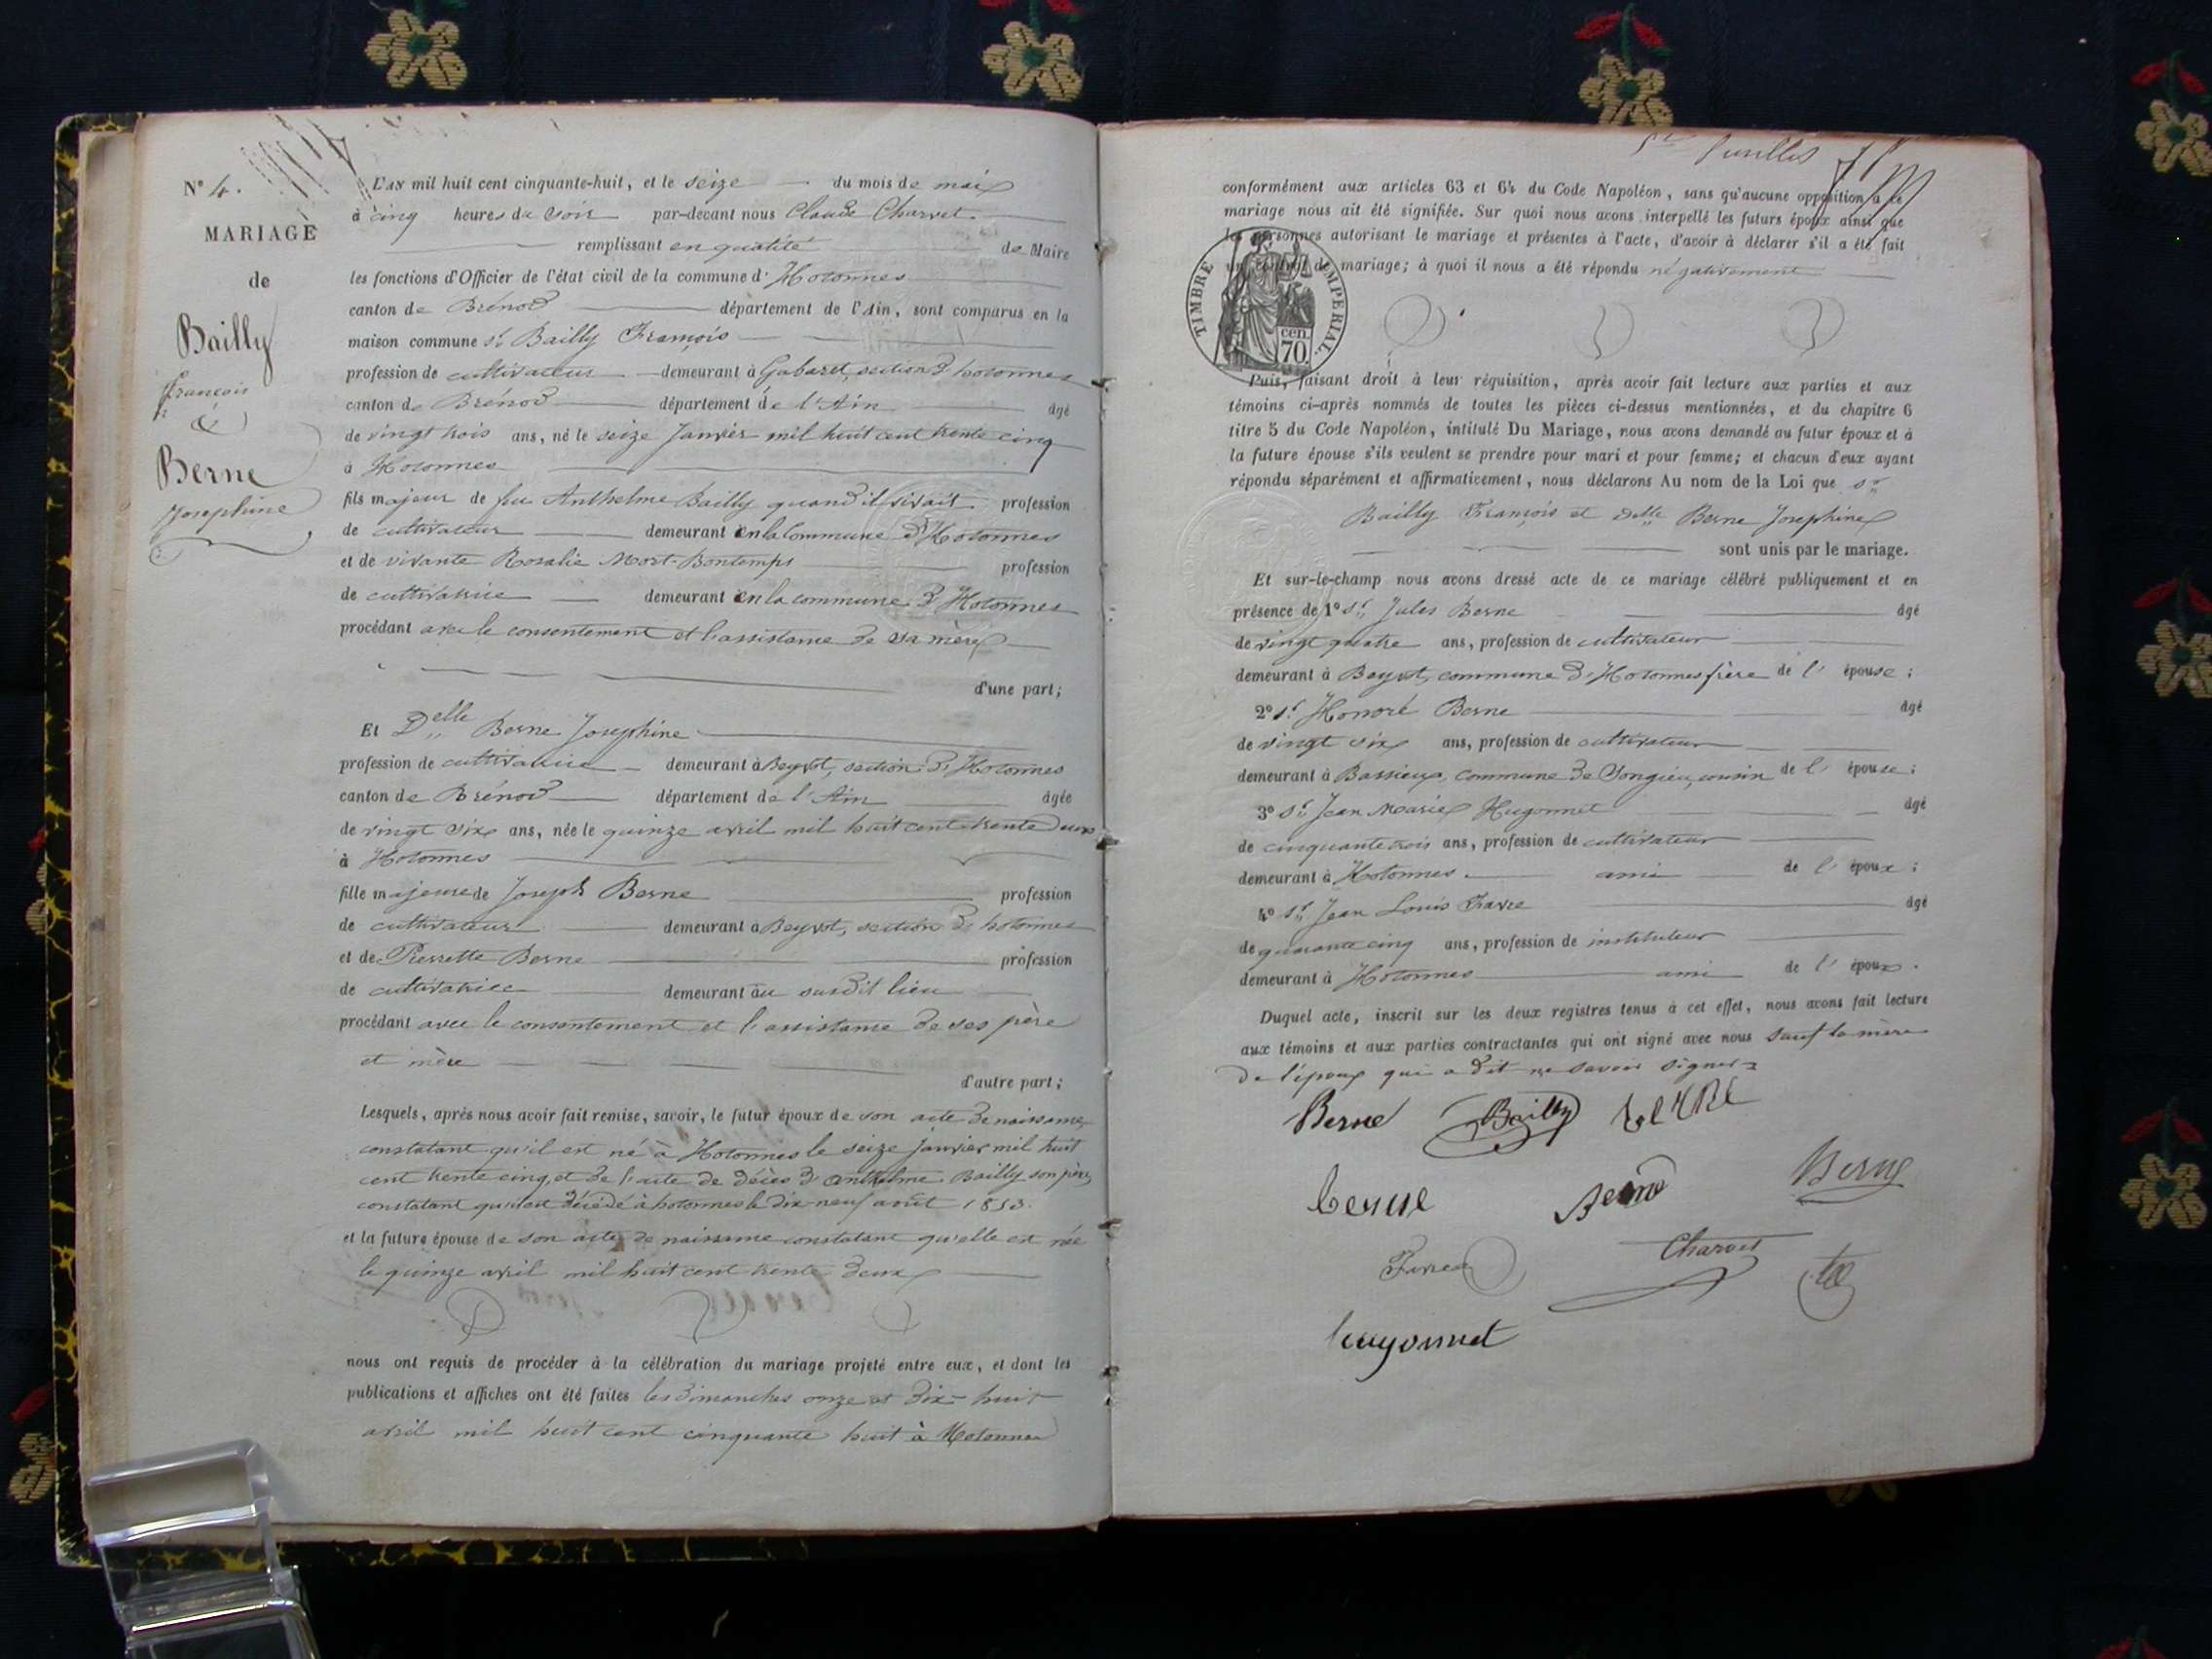 N° 4.
MARIAGE
de
Bailly
François
&
Berne
Josephine
L'an mil huit cent cinquante-huit, et le seize du mois de mai
à cinq heures du soir par-devant nous Claude Charvet
remplissant en qualité de Maire
les fonctions d'Officier de l'état civil de la commune d'Hotonnes
canton de Brénod département de l'Ain, sont comparus en la
maison commune sr Bailly François
profession de cultivateur demeurant à Gabaret, section d'hotonnes
canton de Brénod département de l'Ain âgé
de vingt trois ans, né le seize Janvier mil huit cent trente cinq
à Hotonnes
fils majeur de feu Anthelme Bailly quand il vivait profession
de cultivateur demeurant en la Commune d'Hotonnes
et de vivante Rosalie Mort-Bontemps profession
de cultivatrice demeurant en la commune d'Hotonnes
procédant avec le consentement et l'assistance de sa mère
d'une part;
Et Delle Berne Josephine
profession de cultivatrice demeurant à Beyrot, section d'Hotonnes
canton de Brénod département de l'Ain âgée
de vingt six ans, née le quinze avril mil huit cent trente deux
à Hotonnes
fille majeure de Joseph Berne profession
de cultivateur demeurant à Beyrot, section d'hotonnes
et de Pierrette Berne profession
de cultivatrice demeurant au susdit lieu
procédant avec le consentement et l'assistance de ses père
et mère
d'autre part;
Lesquels, après nous avoir fait remise, savoir, le futur époux de son acte de naissance
constatant qu'il est né à Hotonnes le seize janvier mil huit
cent trente cinq, et de l'acte de décès d'anthelme Bailly son père,
constatant qu'il est décédé à hotonnes le dix-neuf août 1853.
et la future épouse de son acte de naissance constatant qu'elle est née
le quinze avril mil huit cent trente deux
nous ont requis de procéder à la célébration du mariage projeté entre eux, et dont les
publications et affiches ont été faites les dimanches onze et dix-huit
avril mil huit cent cinquante huit à Hotonnes
conformément aux articles 63 et 64 du Code Napoléon, sans qu'aucune opposition à ce
mariage nous ait été signifiée. Sur quoi nous avons interpellé les futurs époux ainsi que
les personnes autorisant le mariage et présentes à l'acte, d'avoir à déclarer s'il a été fait
un contrat de mariage; à quoi il nous a été répondu négativement
TIMBRE IMPERIAL.
cen.
70.
Puis, faisant droit à leur réquisition, après avoir fait lecture aux parties et aux
témoins ci-après nommés de toutes les pièces ci-dessus mentionnées, et du chapitre 6
titre 5 du Code Napoléon, intitulé Du Mariage, nous avons demandé au futur époux et à
la future épouse s'ils veulent se prendre pour mari et pour femme; et chacun d'eux ayant
répondu séparément et affirmativement, nous déclarons Au nom de la Loi que sr
Bailly François et delle Berne Josephine
sont unis par le mariage.
Et sur-le-champ nous avons dressé acte de ce mariage célébré publiquement et en
présence de 1° sr Jules Berne âgé
de vingt quatre ans, profession de cultivateur
demeurant à Beyrot, commune d'Hotonnes frère de l'épouse;
2° sr Honoré Berne âgé
de vingt six ans, profession de cultivateur
demeurant à Bassieux, commune de Songieu, cousin de l'épouse;
3° sr Jean Marie Hugonnet âgé
de cinquante trois ans, profession de cultivateur
demeurant à Hotonnes ami de l'époux;
4° sr Jean Louis Favre âgé
de quarante cinq ans, profession de instituteur
demeurant à Hotonnes ami de l'époux.
Duquel acte, inscrit sur les deux registres tenus à cet effet, nous avons fait lecture
aux témoins et aux parties contractantes qui ont signé avec nous sauf la mère
de l'époux qui a dit ne savoir signer
Berne Bailly
berne Berne Berne
Favre Charvet
hugonnet